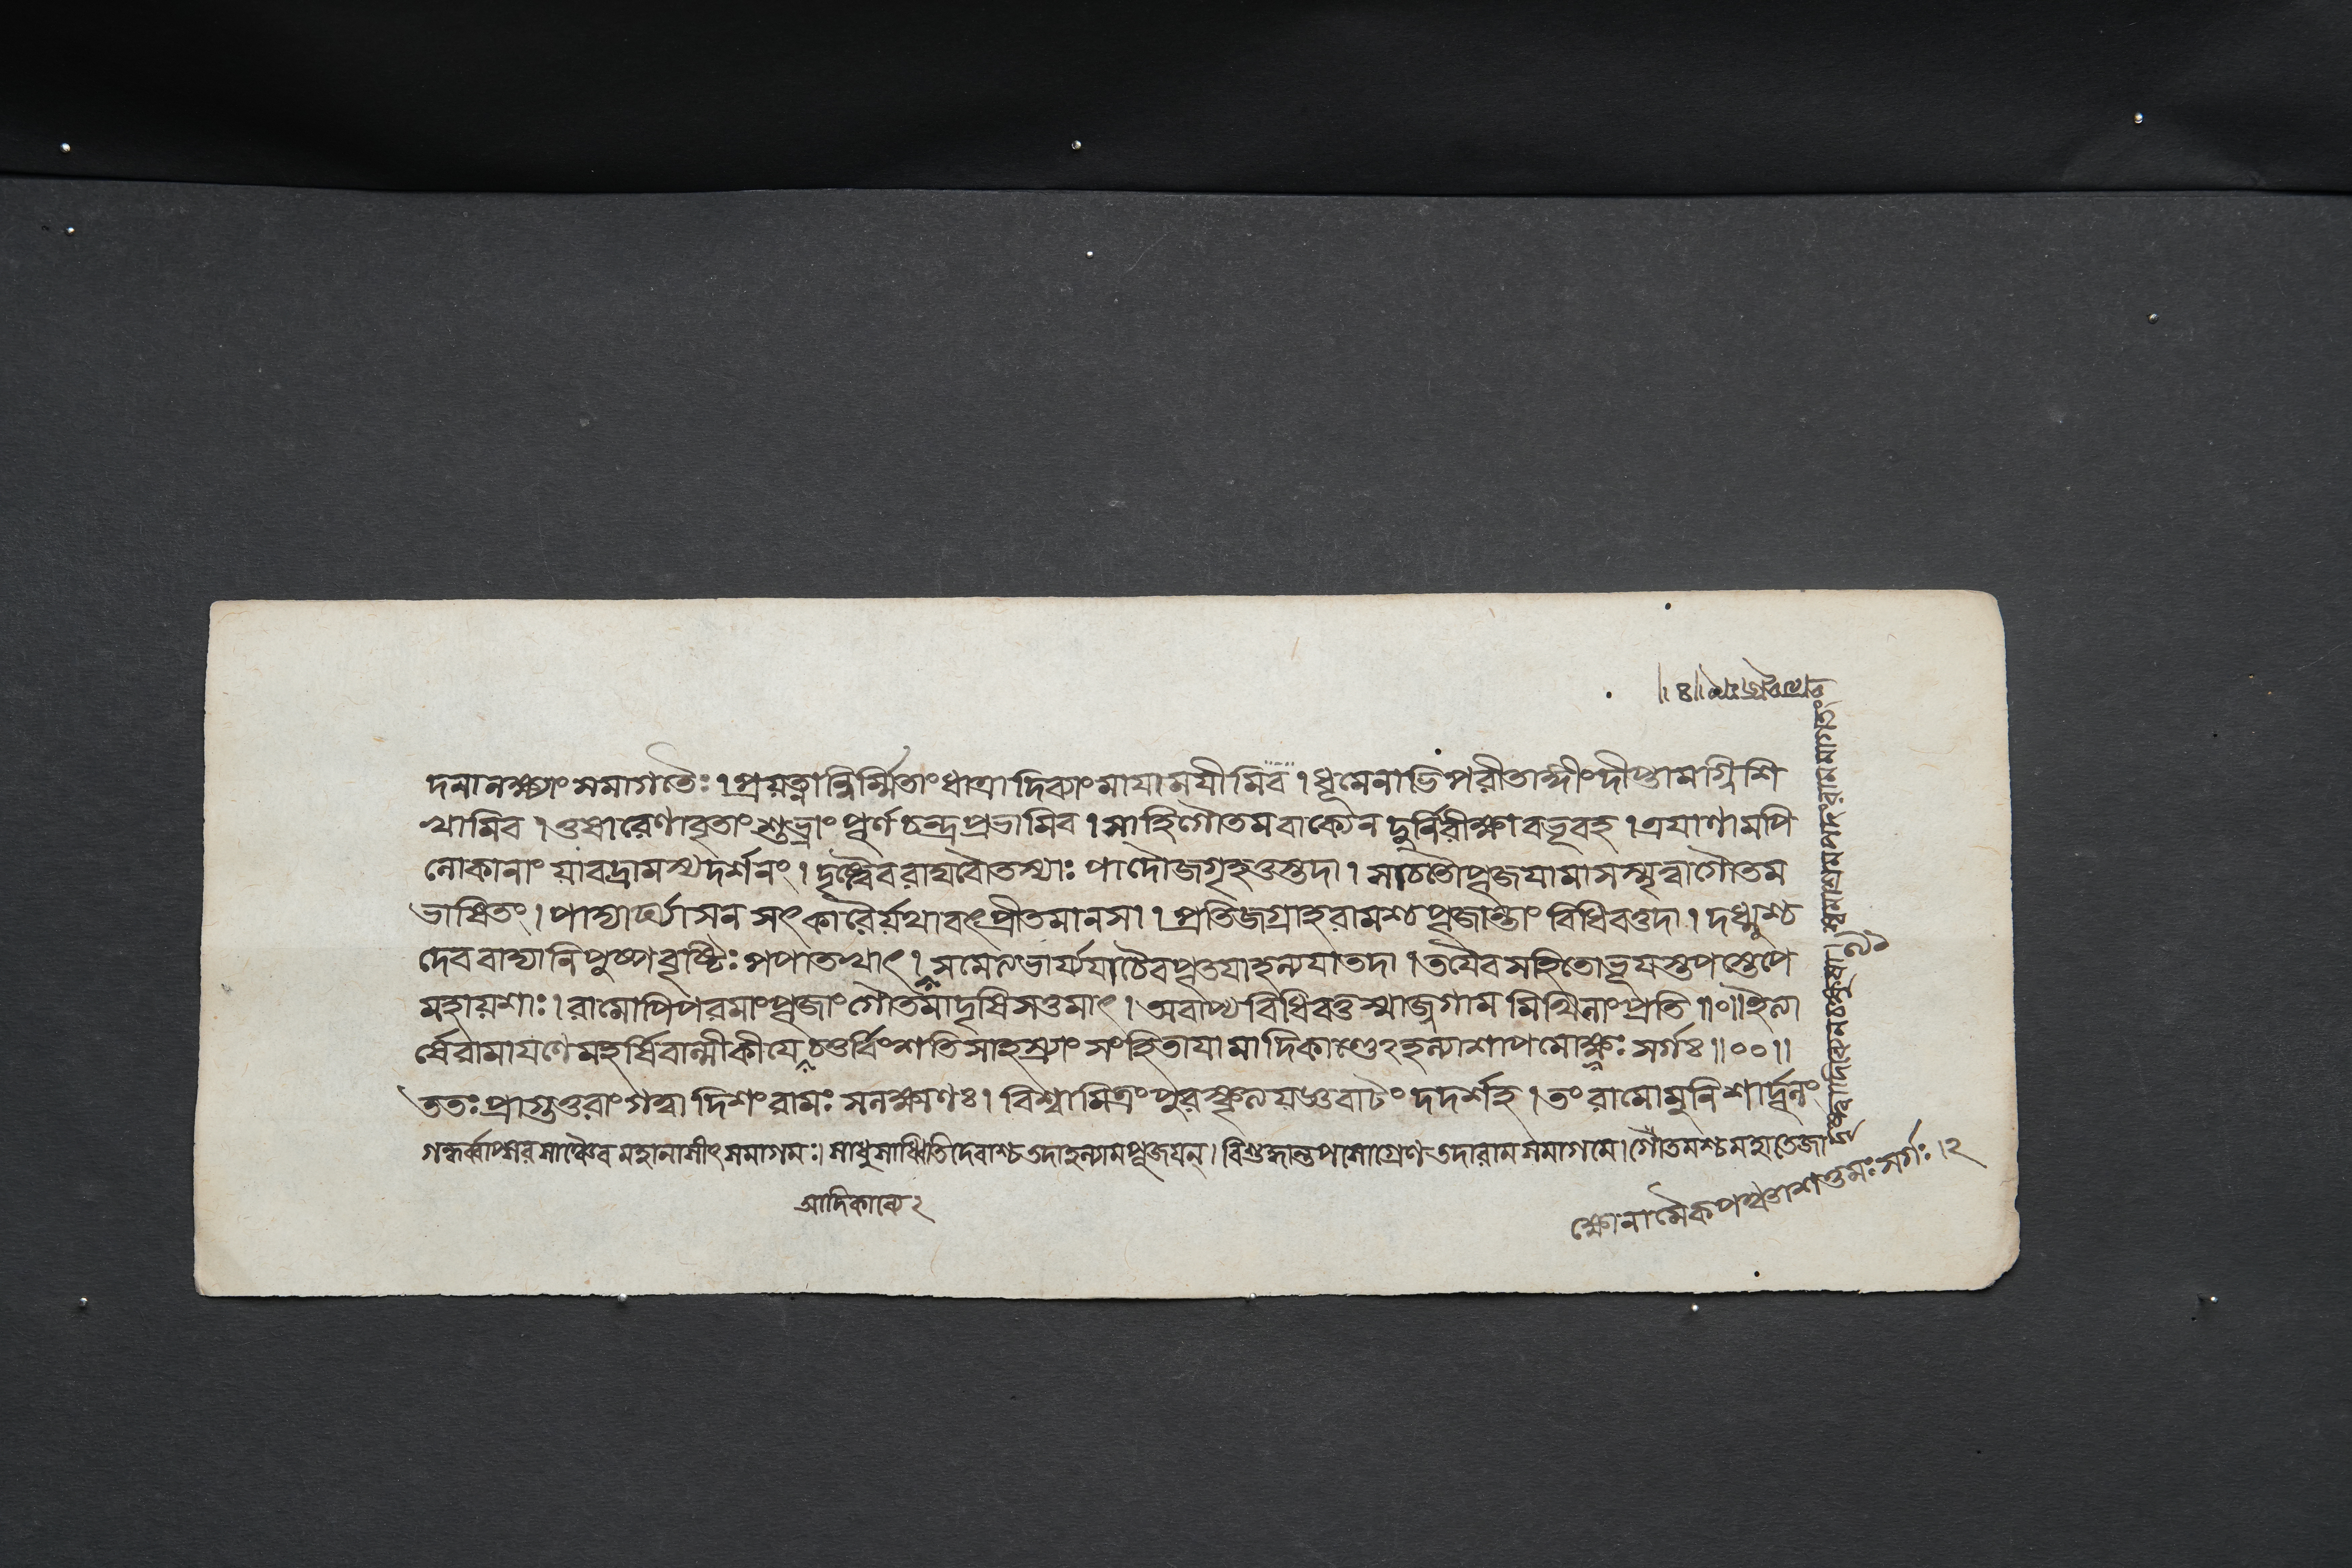 লোকৈরপি সমাগতৈঃ । প্রয়ত্নান্নির্ম্মিতাংধাত্রাদিব্যাংমায়াময়ীমিব । ধূমেনাভিপরীতাঙ্গীংদীপ্তামগ্নিশি
খামিব । তুষারেণাবৃতাংশুভ্রাংপূর্ণচন্দ্রপ্রভামিব । সাহিগৌতমবাক্যেনদুর্নিরীক্ষাবভূবহ । ত্রয়াণামপি
লোকানাংয়াবদ্রামস্যদর্শনং । দৃষ্ট্বৈবরাঘবৌতস্যাঃপাদৌজগৃহতুস্তদা । সাচতৌপূজয়ামাসস্মৃত্বাগৌতম
ভাষিতং । পাদ্যার্ঘ্যাসনসৎকারৈর্য়থাবৎপ্রীতমানসা । প্রতিজগ্রাহরামশ্চপূজান্তাংবিধিবত্তদা । দধ্মুশ্চ
দেববাদ্যানিপুষ্পবৃষ্টিঃপপাতখাৎ । সমেত্যভার্য্যয়াচৈবপূতয়াহল্যয়াতদা । তয়ৈবসহিতোভূয়স্তপস্তেপে
মহায়শাঃ । রামোপিপরমাংপূজাংগৌতমাদৃষিসত্তমাৎ । অবাপ্যবিধিবত্তস্মাজ্জগামমিথিলাংপ্রতি ॥০॥ ইত্যা
র্ষেরামায়ণেমহর্ষিবাল্মীকীয়েচতুর্বিংশতিসাহস্র্যাংসংহিতায়ামাদিকাণ্ডেঽহল্যাশাপমোক্ষঃসর্গঃ ॥০০॥
ততঃপ্রাগুত্তরাংগত্বাদিশংরামঃসলক্ষ্মণঃ । বিশ্বামিত্রংপুরস্কৃত্যয়জ্ঞবাটংদদর্শহ । তংরামোমুনিশার্দূলং
গন্ধর্ব্বাপ্সরসাঞ্চৈবমহানাসীৎসমাগমঃ । সাধুসাধ্বিতিদেবাশ্চতদাহল্যামপূজয়ন্ । বিশুদ্ধান্তপসোগ্রেণতদারামসমাগমে । গৌতমশ্চমহাতেজা
ক্ষোনামৈকপঞ্চাশত্তমঃসর্গঃ । ২
আদিকাব্যে ২